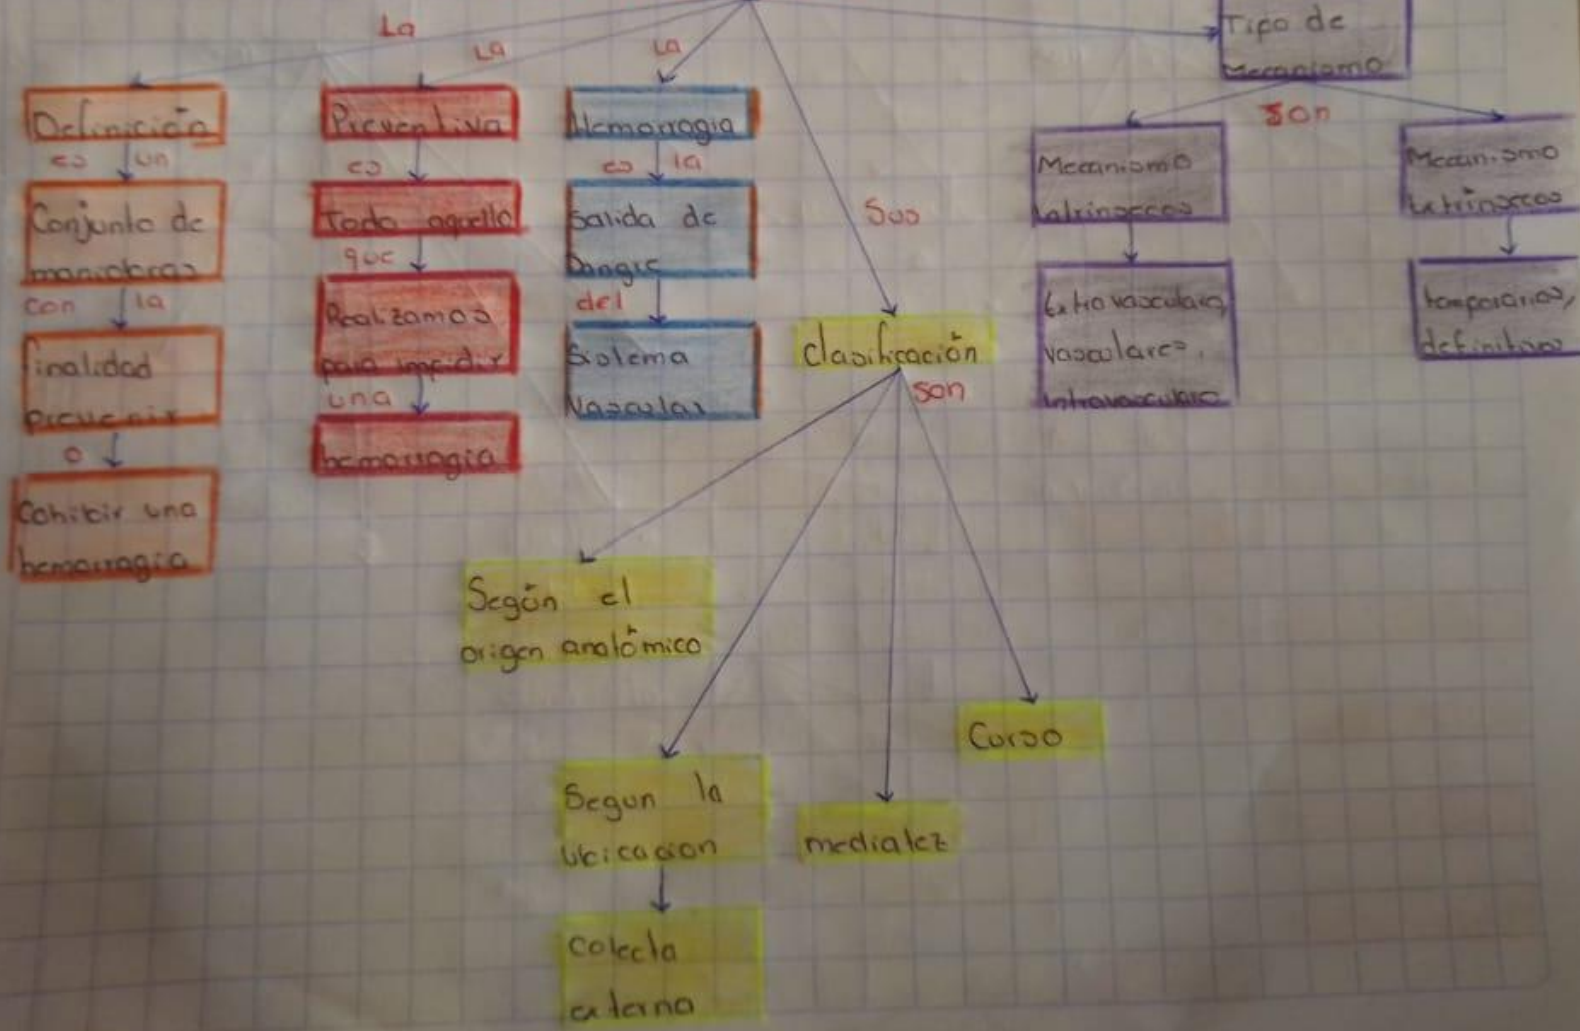 La
La
La
Tipo de
Mecanismo
son
Definición
es un
Conjunto de
maniobras
con la
finalidad
prevenir
o
Cohibir una
hemorragia
Preventiva
es
Todo aquello
que
Realizamos
para impedir
una
hemorragia
Hemorragia
es la
Salida de
Sangre
del
Sistema
Vascular
Sus
clasificación
son
Según el
origen anatómico
Segun la
Ubicacion
colecta
externa
medialez
Curso
Mecanismo
Intrinsecos
Extravasculares,
vasculares,
intravasculare
Mecanismo
Extrinsecos
temporarios,
definitivos